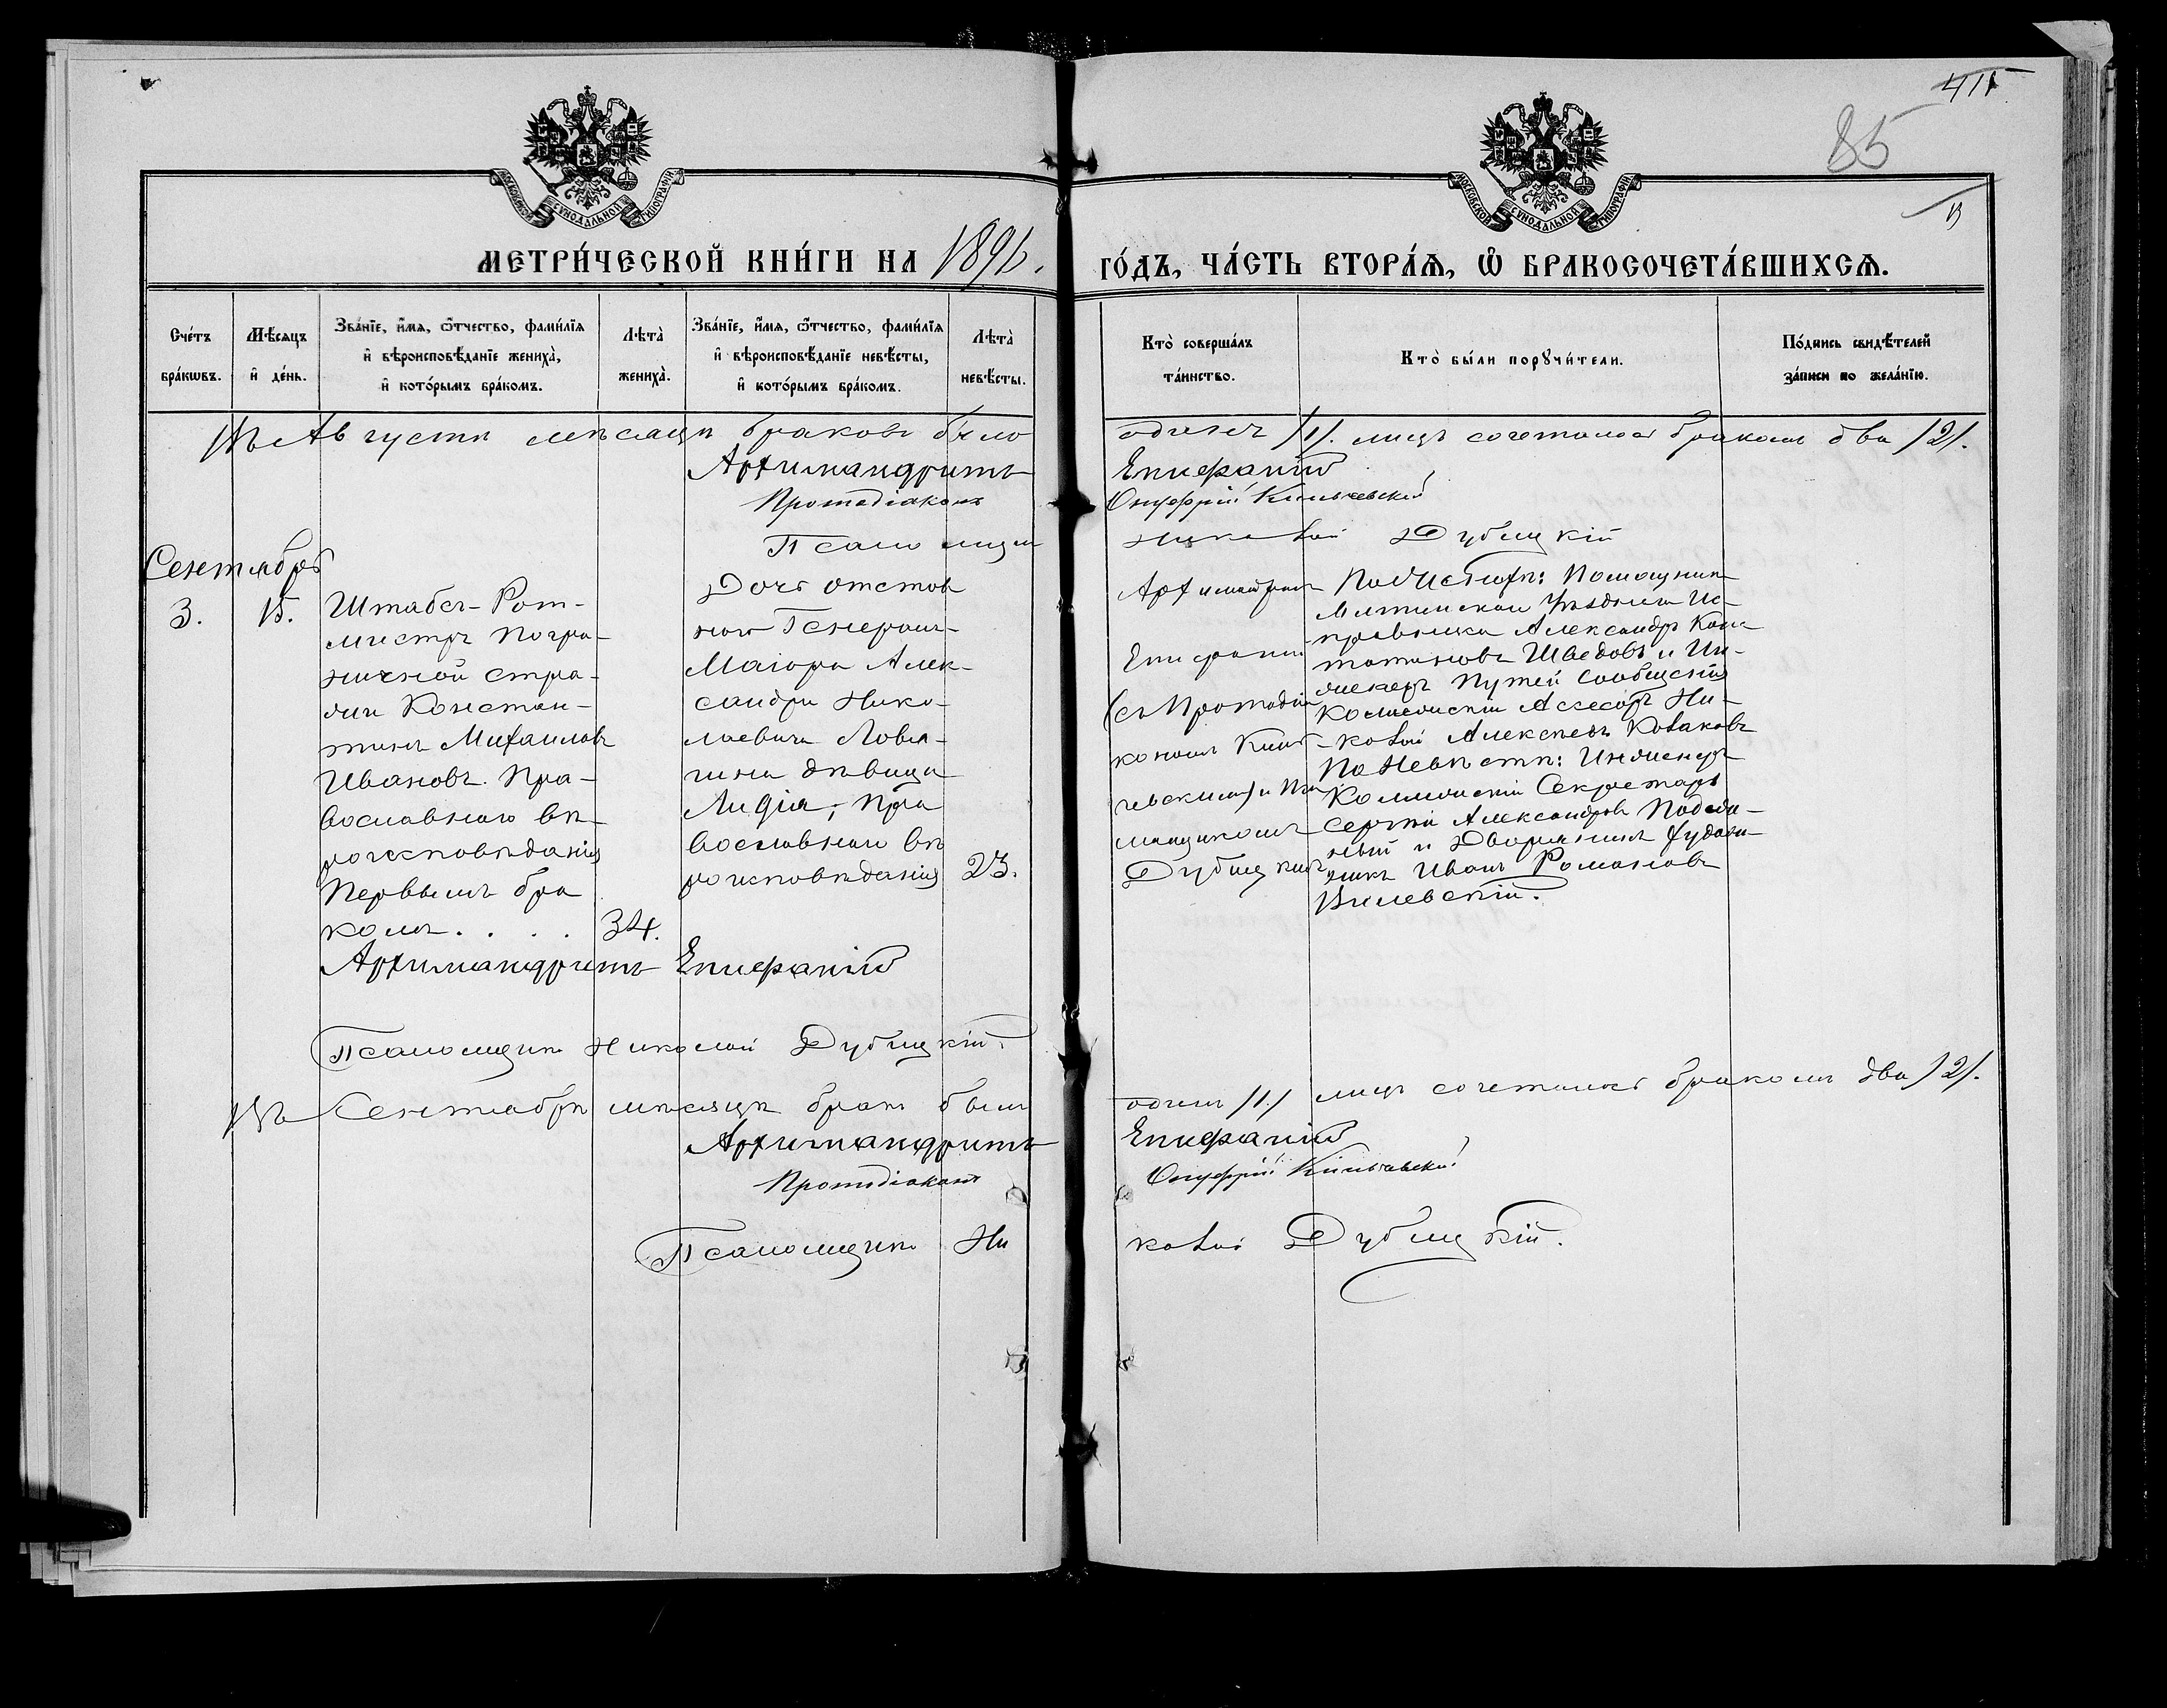 411
85
МОСКОВСКОЙ СѴНОДАЛЬНОЙ ТИПОГРАФІИ
МОСКОВСКОЙ СѴНОДАЛЬНОЙ ТИПОГРАФІИ
МЕТРИ́ЧЕСКОЙ КНИ́ГИ НА 1896. ГО́ДЪ, ЧА́СТЬ ВТОРА́Ѧ, Ѡ҆ БРАКОСОЧЕТА́ВШИХСѦ.
Сче́тъ бра́кѡвъ.
Мѣ́сѧцъ и҆ де́нь.
Зва́нїе, и҆́мѧ, ѻ҆́тчество, фами́лїѧ и҆ вѣроисповѣ́данїе жениха̀, и҆ кото́рымъ бра́комъ.
Лѣта̀ жениха̀.
Зва́нїе, и҆́мѧ, ѻ҆́тчество, фами́лїѧ и҆ вѣроисповѣ́данїе невѣ́сты, и҆ кото́рымъ бра́комъ.
Лѣта̀ невѣ́сты.
Кто̀ соверша́лъ та́инство.
Кто̀ бы́ли порꙋчи́тели.
По́дпись свидѣ́телей за́писи по жела́нїю.
Въ Августѣ мѣсяцѣ браковъ было одинъ /1/. лицъ сочеталось бракомъ два /2/.
Архимандритъ Епифаній
Протодіаконъ Онуфрій
Псаломщикъ Николай Дубицкій
Сентябрь
3.
15.
Штабсъ-Рот-
мистръ погра-
ничной стра-
жи Констан-
тинъ Михаиловъ
Ивановъ. Пра-
вославнаго вѣ-
роисповѣданія
Первымъ бра
комъ. . . .
34.
Дочь отстав
наго Генералъ-
Маіора Алек-
сандра Нико-
лаевича Ловя-
гина дѣвица
Лидія, пра
вославнаго вѣ
роисповѣданія
23.
Архимандритъ
Епифаній
(съ Протодіа
кономъ
и Пса
ломщикомъ
Дубицкимъ
По Женихѣ: Помощникъ
Уѣзднаго Ис-
правника Александръ Конс
тантиновъ Шведовъ и Ин-
женеръ Путей Сообщенія
Коллежскій Асессоръ Ни-
колай Алексѣевъ
По Невѣстѣ: Инженеръ
Коллежскій Секретарь
Сергѣй Александровъ
и Дворянинъ Худож-
никъ Иванъ Романовъ
Вилевскій.
Архимандритъ Епифаній
Псаломщикъ Николай Дубицкій.
Въ Сентябрѣ мѣсяцѣ бракъ былъ одинъ /1/ лицъ сочеталось бракомъ два /2/.
Архимандритъ Епифаній
Протодіаконъ Онуфрій
Псаломщикъ Николай Дубицкій.